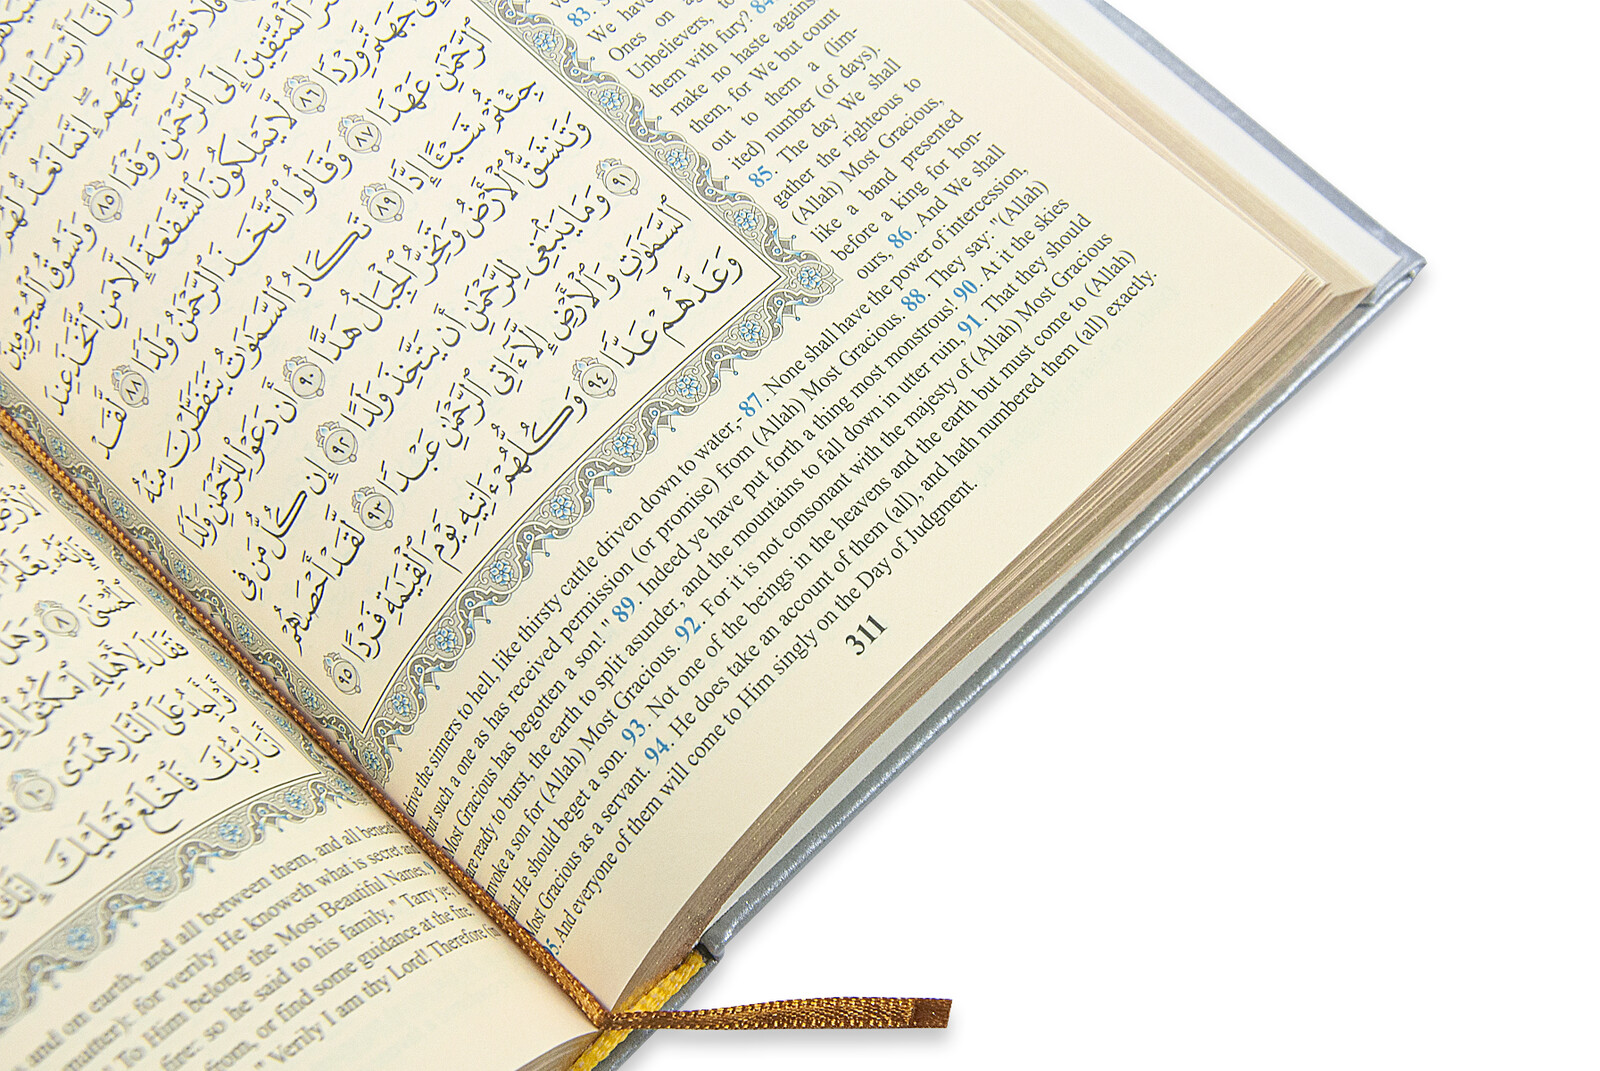 فَلَا تَعْجَلْ عَلَيْهِمْ إِنَّمَا نَعُدُّ لَهُمْ
ٱلْمُتَّقِينَ إِلَى ٱلرَّحْمَٰنِ وَفْدًا ٨٥ وَنَسُوقُ ٱلْمُجْرِمِينَ
إِلَىٰ جَهَنَّمَ وِرْدًا ٨٦ لَّا يَمْلِكُونَ ٱلشَّفَٰعَةَ إِلَّا مَنِ ٱتَّخَذَ عِندَ
ٱلرَّحْمَٰنِ عَهْدًا ٨٧ وَقَالُوا۟ ٱتَّخَذَ ٱلرَّحْمَٰنُ وَلَدًا ٨٨ لَّقَدْ
جِئْتُمْ شَيْـًٔا إِدًّا ٨٩ تَكَادُ ٱلسَّمَٰوَٰتُ يَتَفَطَّرْنَ مِنْهُ
وَتَنشَقُّ ٱلْأَرْضُ وَتَخِرُّ ٱلْجِبَالُ هَدًّا ٩٠ أَن دَعَوْا۟ لِلرَّحْمَٰنِ وَلَدًا
٩١ وَمَا يَنۢبَغِى لِلرَّحْمَٰنِ أَن يَتَّخِذَ وَلَدًا ٩٢ إِن كُلُّ مَن فِى
ٱلسَّمَٰوَٰتِ وَٱلْأَرْضِ إِلَّآ ءَاتِى ٱلرَّحْمَٰنِ عَبْدًا ٩٣ لَّقَدْ أَحْصَىٰهُمْ
وَعَدَّهُمْ عَدًّا ٩٤ وَكُلُّهُمْ ءَاتِيهِ يَوْمَ ٱلْقِيَٰمَةِ فَرْدًا ٩٥
83.
We have
Ones on
Unbelievers, to
them with fury? 84.
make no haste against
them, for We but count
out to them a (lim-
ited) number (of days).
85. The day We shall
gather the righteous to
(Allah) Most Gracious,
like a band presented
before a king for hon-
ours, 86. And We shall
drive the sinners to hell, like thirsty cattle driven down to water,- 87. None shall have the power of intercession,
but such a one as has received permission (or promise) from (Allah) Most Gracious. 88. They say: "(Allah)
Most Gracious has begotten a son!" 89. Indeed ye have put forth a thing most monstrous! 90. At it the skies
are ready to burst, the earth to split asunder, and the mountains to fall down in utter ruin, 91. That they should
invoke a son for (Allah) Most Gracious. 92. For it is not consonant with the majesty of (Allah) Most Gracious
that He should beget a son. 93. Not one of the beings in the heavens and the earth but must come to (Allah)
Most Gracious as a servant. 94. He does take an account of them (all), and hath numbered them (all) exactly.
95. And everyone of them will come to Him singly on the Day of Judgment.
311
ٱلْحُسْنَىٰ ٨ وَهَلْ
فَقَالَ لِأَهْلِهِ ٱمْكُثُوٓا۟
ٱلنَّارِ هُدًى ١٠
رَبُّكَ فَٱخْلَعْ نَعْلَيْكَ
and on earth, and all between them, and all beneath
matter): for verily He knoweth what is secret and
To Him belong the Most Beautiful Names.
fire: so he said to his family," Tarry ye;
from, or find some guidance at the fire.
" Verily I am thy Lord! Therefore